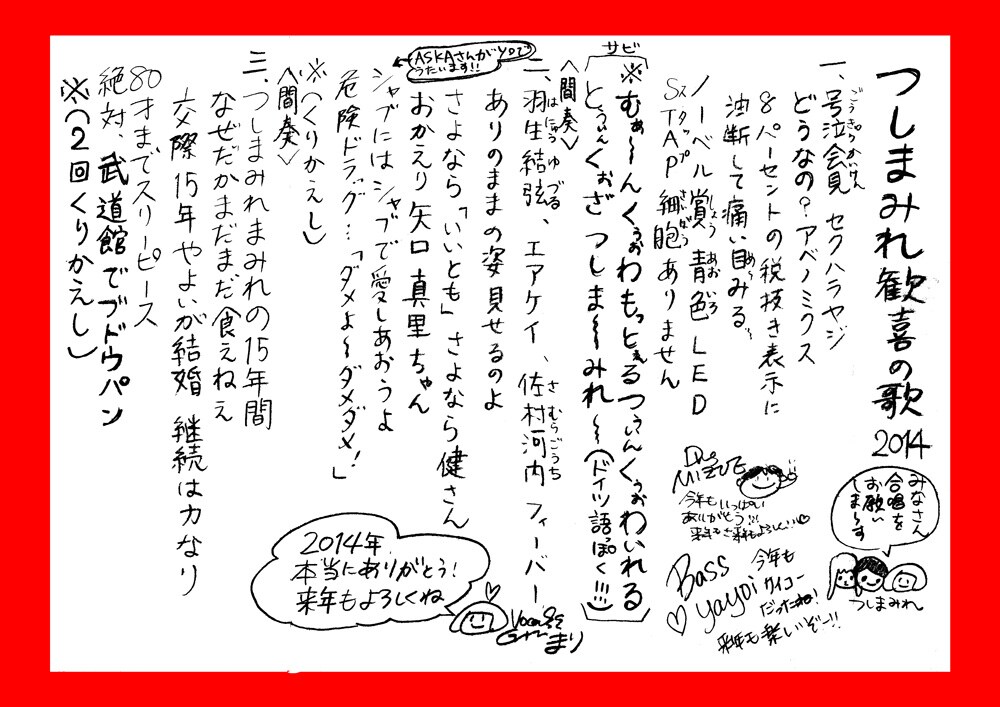 つしまみれ歓喜の歌 2014
一、号泣会見 セクハラヤジ
ごうきゅうかいけん
どうなの？アベノミクス
8パーセントの税抜き表示に
油断して痛い目みる
ノーベル賞 青色LED
しょう あおいろ
STAP細胞ありません
スタップ さいぼう
サビ
※むぁ〜んくぉわもっとぇるつぃんくぉわいれる
とぅぃんくぉざ つしま〜みれ〜(ドイツ語っぽく!!!)
〈間奏〉
二、羽生結弦、エアケイ、佐村河内フィーバー
はにゅうゆづる さむらごうち
ありのままの姿見せるのよ
さよなら「いいとも」さよなら健さん
おかえり矢口真里ちゃん
ASKAさんがyoで
うたいます!!
シャブにはシャブで愛しあおうよ
危険ドラッグ…「ダメよ〜ダメダメ!」
※(くりかえし)
〈間奏〉
三、つしまみれまみれの15年間
なぜだかまだまだ食えねぇ
交際15年やよいが結婚 継続は力なり
80才までスリーピース
絶対、武道館でブドウパン
※(2回くりかえし)
みなさん
合唱を
お願い
しま〜す
つしまみれ
Drs
MIZUE
今年もいっぱい
ありがとう!!!
来年もよろしく
Bass
yayoi
今年も
サイコー
だったね!
来年も楽しいぞー!!
2014年
本当にありがとう!
来年もよろしくね
Vocal &
Gtr
まり